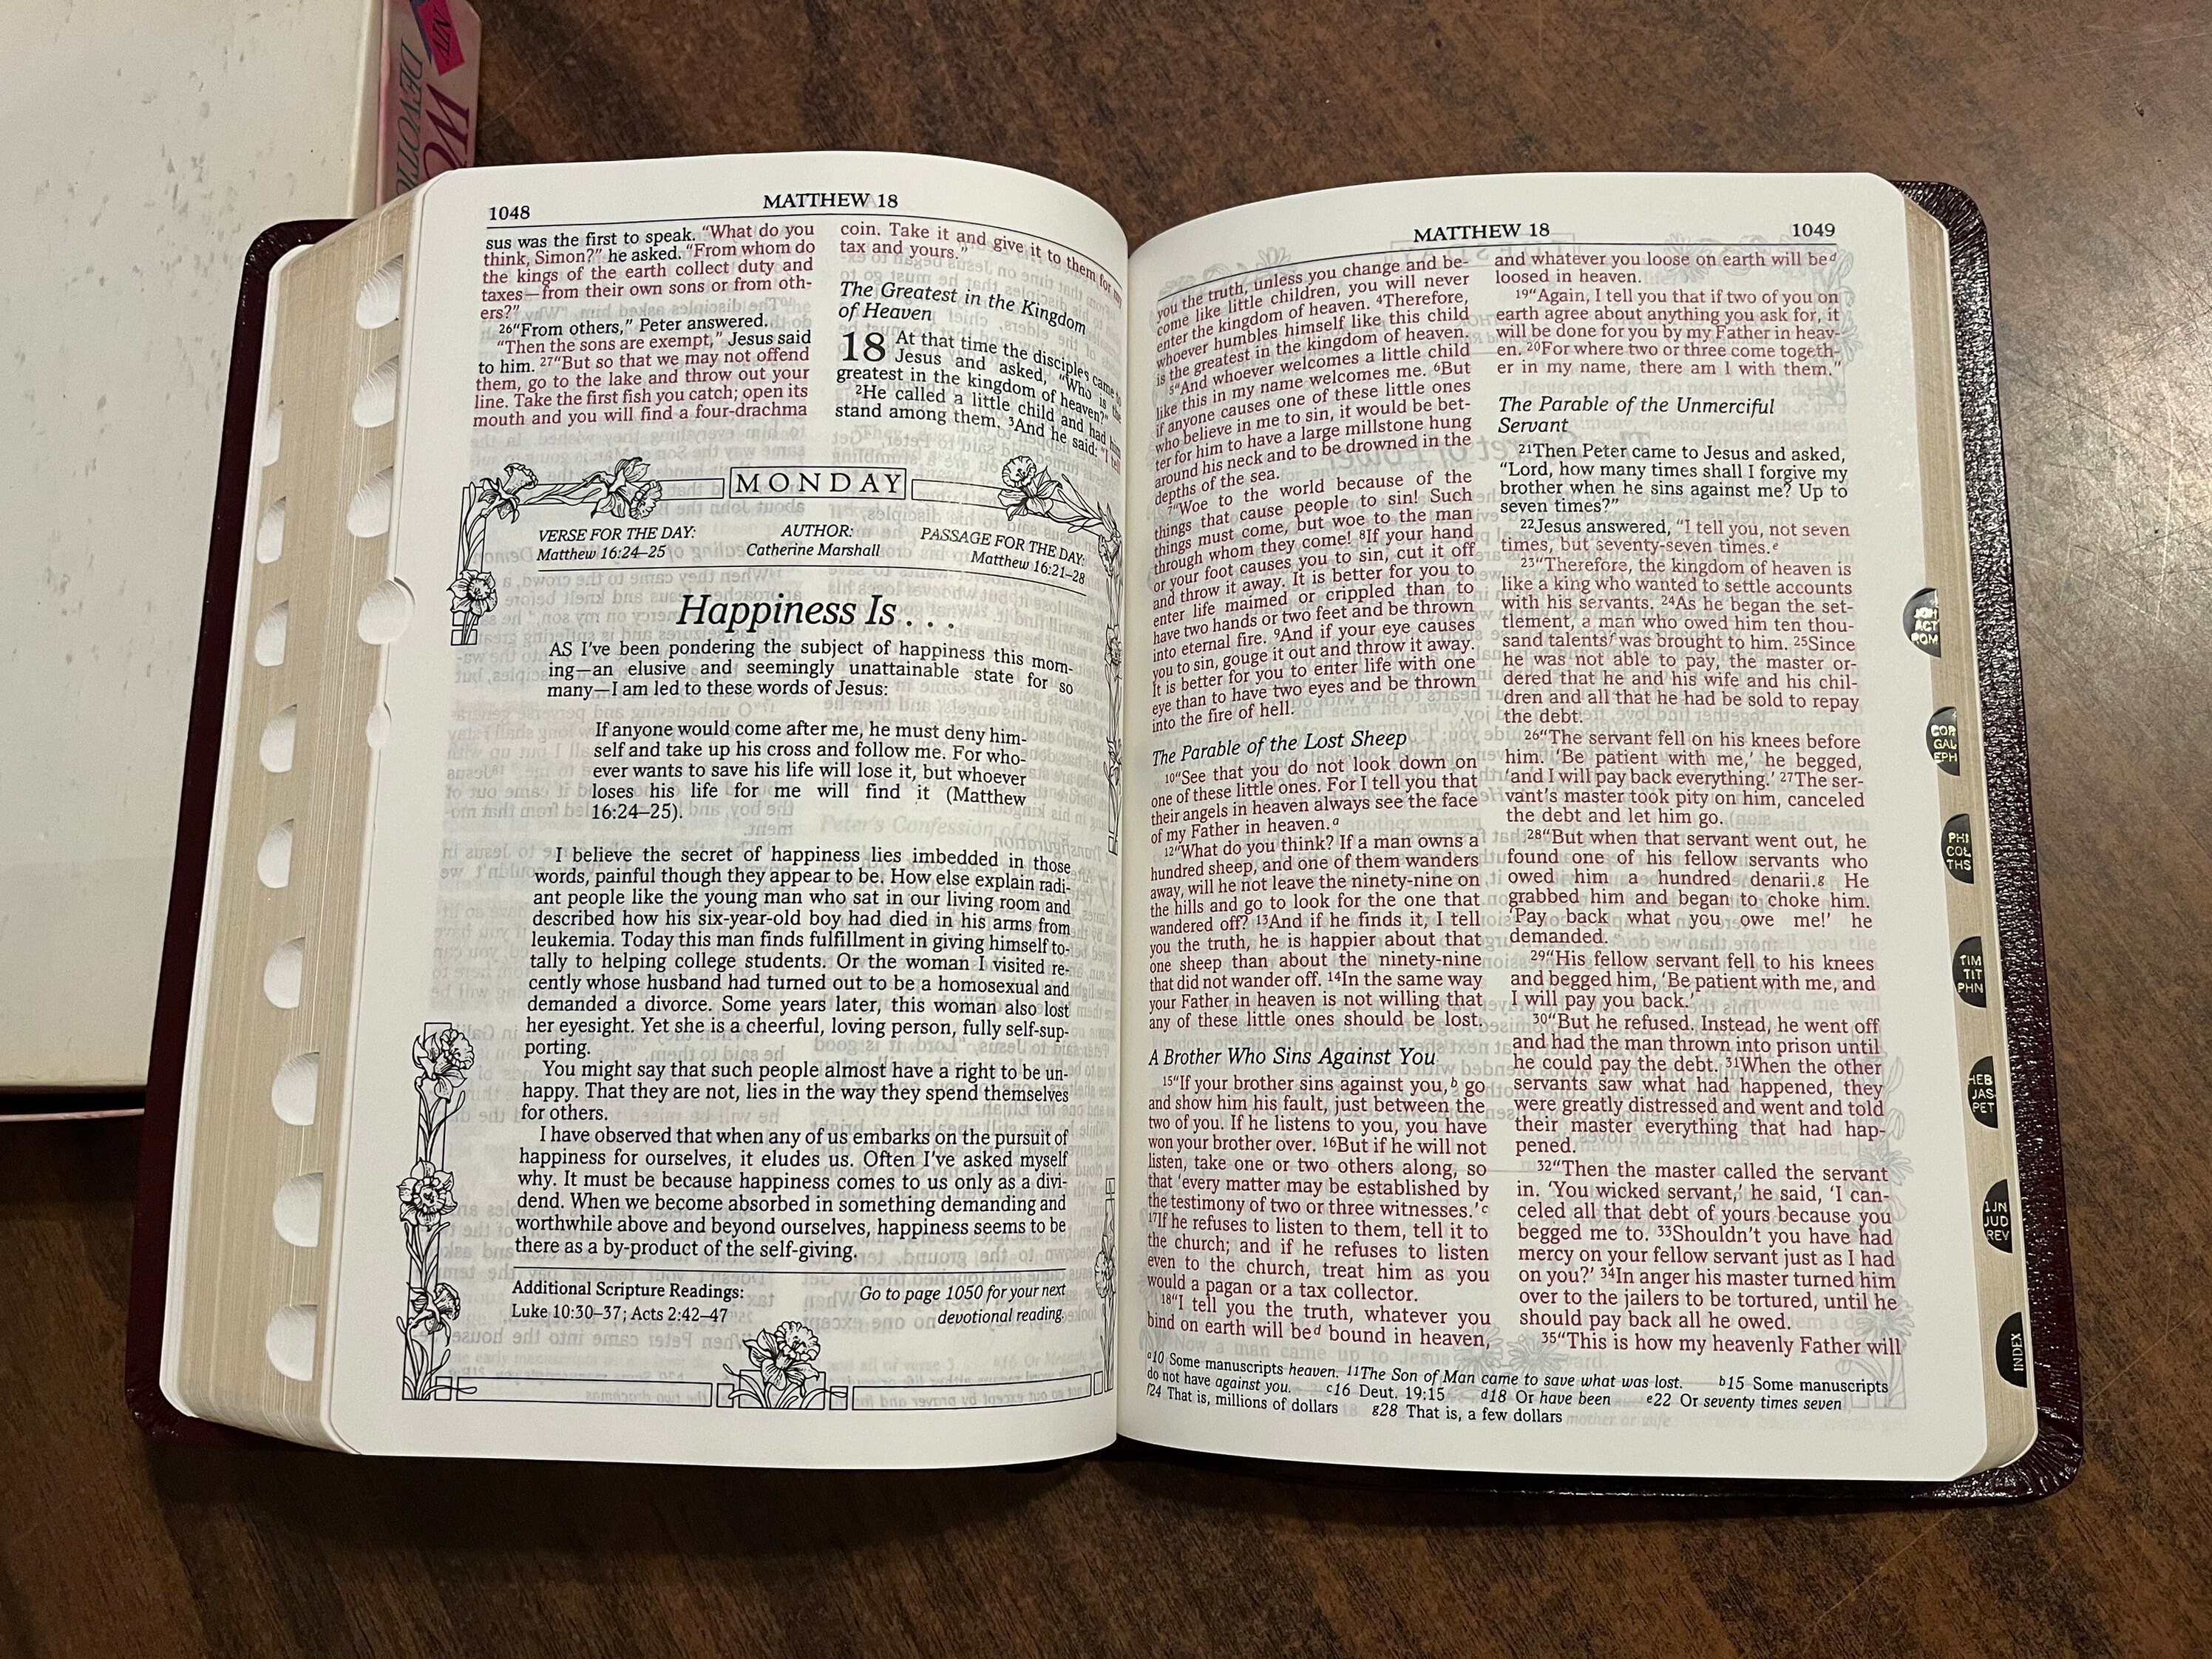 NIV
WO
DEVOTIO
1048
MATTHEW 18
sus was the first to speak. “What do you
think, Simon?” he asked. “From whom do
the kings of the earth collect duty and
taxes—from their own sons or from oth-
ers?”
26“From others,” Peter answered.
“Then the sons are exempt,” Jesus said
to him. 27“But so that we may not offend
them, go to the lake and throw out your
line. Take the first fish you catch; open its
mouth and you will find a four-drachma
coin. Take it and give it to them for my
tax and yours.”
The Greatest in the Kingdom
of Heaven
18 At that time the disciples came to
Jesus and asked, “Who is the
greatest in the kingdom of heaven?”
2He called a little child and had him
stand among them. 3And he said: “I tell
MONDAY
VERSE FOR THE DAY:
Matthew 16:24–25
AUTHOR:
Catherine Marshall
PASSAGE FOR THE DAY:
Matthew 16:21–28
Happiness Is . . .
AS I’ve been pondering the subject of happiness this morn-
ing—an elusive and seemingly unattainable state for so
many—I am led to these words of Jesus:
If anyone would come after me, he must deny him-
self and take up his cross and follow me. For who-
ever wants to save his life will lose it, but whoever
loses his life for me will find it (Matthew
16:24–25).
I believe the secret of happiness lies imbedded in those
words, painful though they appear to be. How else explain radi-
ant people like the young man who sat in our living room and
described how his six-year-old boy had died in his arms from
leukemia. Today this man finds fulfillment in giving himself to-
tally to helping college students. Or the woman I visited re-
cently whose husband had turned out to be a homosexual and
demanded a divorce. Some years later, this woman also lost
her eyesight. Yet she is a cheerful, loving person, fully self-sup-
porting.
You might say that such people almost have a right to be un-
happy. That they are not, lies in the way they spend themselves
for others.
I have observed that when any of us embarks on the pursuit of
happiness for ourselves, it eludes us. Often I’ve asked myself
why. It must be because happiness comes to us only as a divi-
dend. When we become absorbed in something demanding and
worthwhile above and beyond ourselves, happiness seems to be
there as a by-product of the self-giving.
Additional Scripture Readings:
Luke 10:30–37; Acts 2:42–47
Go to page 1050 for your next
devotional reading.
MATTHEW 18
1049
you the truth, unless you change and be-
come like little children, you will never
enter the kingdom of heaven. 4Therefore,
whoever humbles himself like this child
is the greatest in the kingdom of heaven.
5“And whoever welcomes a little child
like this in my name welcomes me. 6But
if anyone causes one of these little ones
who believe in me to sin, it would be bet-
ter for him to have a large millstone hung
around his neck and to be drowned in the
depths of the sea.
7“Woe to the world because of the
things that cause people to sin! Such
things must come, but woe to the man
through whom they come! 8If your hand
or your foot causes you to sin, cut it off
and throw it away. It is better for you to
enter life maimed or crippled than to
have two hands or two feet and be thrown
into eternal fire. 9And if your eye causes
you to sin, gouge it out and throw it away.
It is better for you to enter life with one
eye than to have two eyes and be thrown
into the fire of hell.
The Parable of the Lost Sheep
10“See that you do not look down on
one of these little ones. For I tell you that
their angels in heaven always see the face
of my Father in heaven.a
12“What do you think? If a man owns a
hundred sheep, and one of them wanders
away, will he not leave the ninety-nine on
the hills and go to look for the one that
wandered off? 13And if he finds it, I tell
you the truth, he is happier about that
one sheep than about the ninety-nine
that did not wander off. 14In the same way
your Father in heaven is not willing that
any of these little ones should be lost.
A Brother Who Sins Against You
15“If your brother sins against you,b go
and show him his fault, just between the
two of you. If he listens to you, you have
won your brother over. 16But if he will not
listen, take one or two others along, so
that ‘every matter may be established by
the testimony of two or three witnesses.’c
17If he refuses to listen to them, tell it to
the church; and if he refuses to listen
even to the church, treat him as you
would a pagan or a tax collector.
18“I tell you the truth, whatever you
bind on earth will bed bound in heaven,
and whatever you loose on earth will bed
loosed in heaven.
19“Again, I tell you that if two of you on
earth agree about anything you ask for, it
will be done for you by my Father in heav-
en. 20For where two or three come togeth-
er in my name, there am I with them.”
The Parable of the Unmerciful
Servant
21Then Peter came to Jesus and asked,
“Lord, how many times shall I forgive my
brother when he sins against me? Up to
seven times?”
22Jesus answered, “I tell you, not seven
times, but seventy-seven times.e
23“Therefore, the kingdom of heaven is
like a king who wanted to settle accounts
with his servants. 24As he began the set-
tlement, a man who owed him ten thou-
sand talentsf was brought to him. 25Since
he was not able to pay, the master or-
dered that he and his wife and his chil-
dren and all that he had be sold to repay
the debt.
26“The servant fell on his knees before
him. ‘Be patient with me,’ he begged,
‘and I will pay back everything.’ 27The ser-
vant’s master took pity on him, canceled
the debt and let him go.
28“But when that servant went out, he
found one of his fellow servants who
owed him a hundred denarii.g He
grabbed him and began to choke him.
‘Pay back what you owe me!’ he
demanded.
29“His fellow servant fell to his knees
and begged him, ‘Be patient with me, and
I will pay you back.’
30“But he refused. Instead, he went off
and had the man thrown into prison until
he could pay the debt. 31When the other
servants saw what had happened, they
were greatly distressed and went and told
their master everything that had hap-
pened.
32“Then the master called the servant
in. ‘You wicked servant,’ he said, ‘I can-
celed all that debt of yours because you
begged me to. 33Shouldn’t you have had
mercy on your fellow servant just as I had
on you?’ 34In anger his master turned him
over to the jailers to be tortured, until he
should pay back all he owed.
35“This is how my heavenly Father will
a10 Some manuscripts heaven. 11The Son of Man came to save what was lost. b15 Some manuscripts
do not have against you. c16 Deut. 19:15 d18 Or have been e22 Or seventy times seven
f24 That is, millions of dollars g28 That is, a few dollars
ACT
ROM
COR
GAL
EPH
PHI
COL
THS
TIM
TIT
PHN
HEB
JAS
PET
1JN
JUD
REV
INDEX